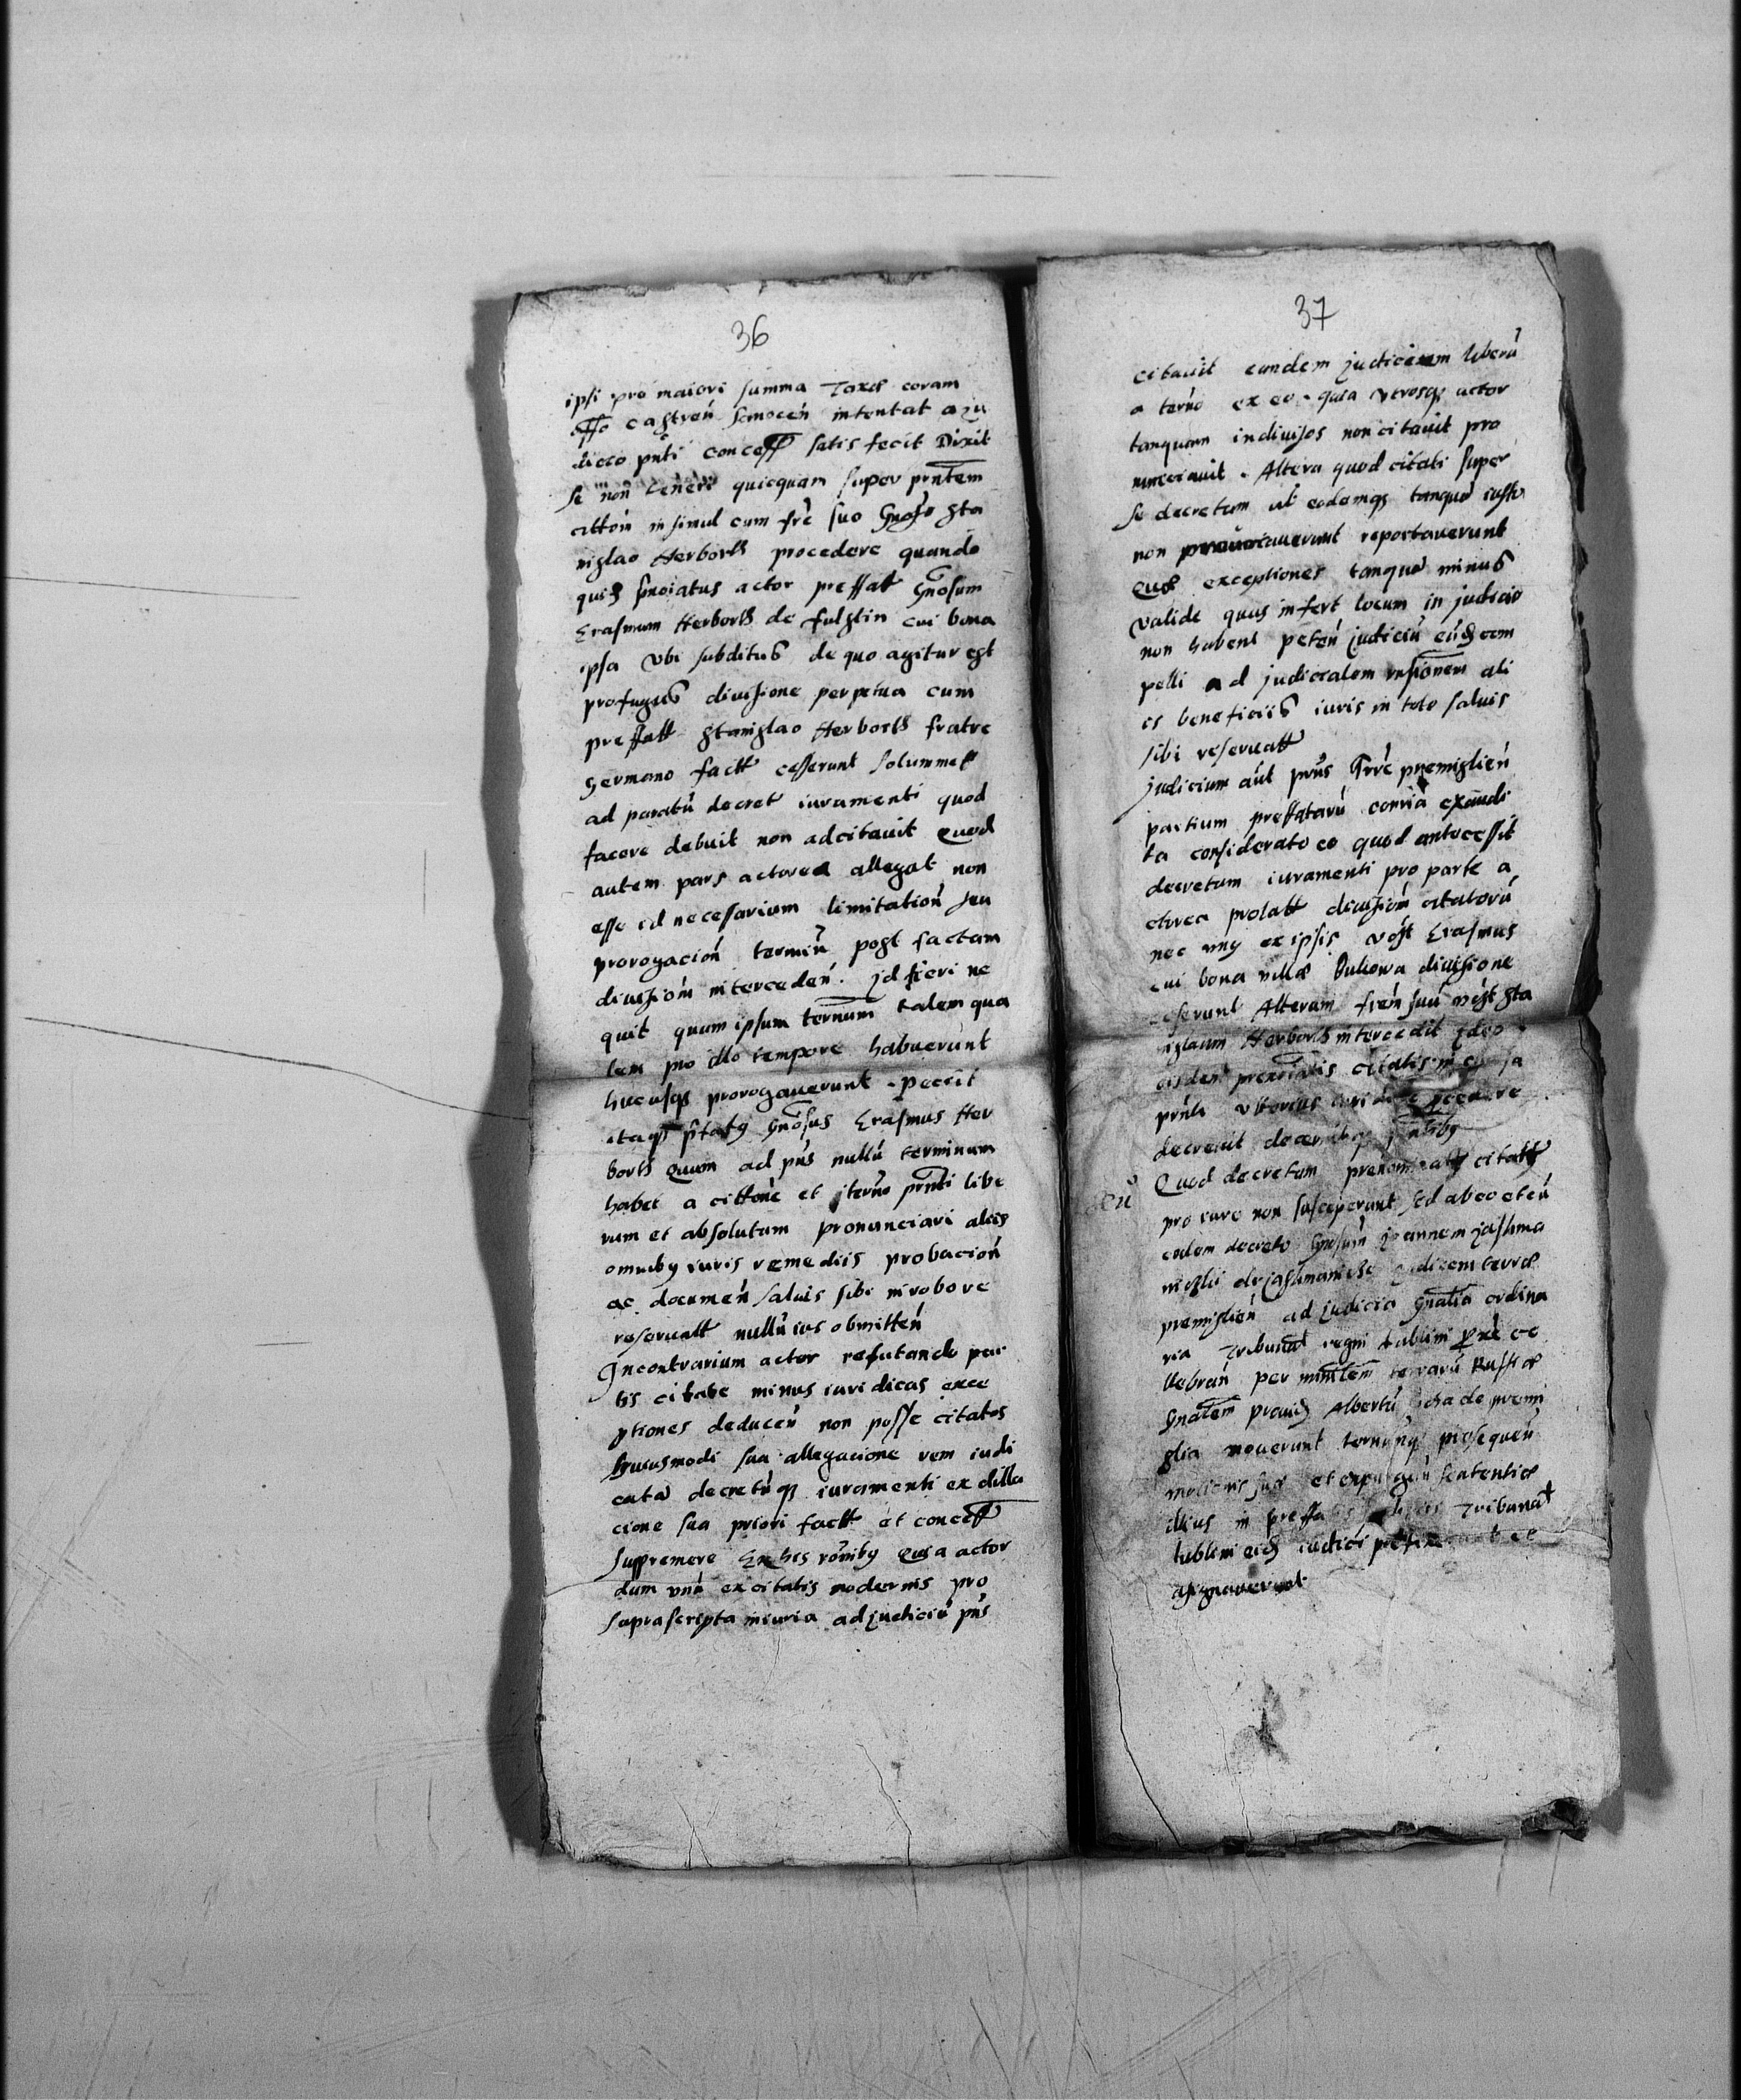 36
ipsi pro maiori summa Taxæ coram
offo castren Sanocen intentat a iu
dicio pnti concess satis fecit Dixit
se non teneri quicquam super pntem
citton insimul cum fre suo Gnoso Sta
nislao Herborth procedere quando
quid senoiatus actor preffatt Gnosum
Erasmum Herborth de fulstin cui bona
ipsa vbi subditus de quo agitur est
profugus diuisione perpetua cum
preffatt Stanislao Herborth fratre
germano factt cesserunt solummo
ad paratu decret iuramenti quod
facere debuit non adcitauit Quod
autem pars actorea allegat non
esse id necessarium limitation seu
prorogacion termin post factam
diuision interceden. Id fieri ne
quit quum ipsum ternum talem qua
lem pro illo tempore habuerunt
hucusq prorogauerunt. Peciit
itaq pfatus Gnosus Erasmus Her
borth Quum ad pns nullu terminum
habet a cittone et iterno pnti libe
rum et absolutum pronunciari aliis
omnibus iuris remediis probacion
ac documen saluis sibi in robore
reseruatt nullu ius obmitten
Incontrarium actor refutando par
tis citate minus iuridicas exce
ptiones deducen non posse citatos
huiusmodi sua allegacione rem iudi
cata decretuq iuramenti ex dilla
cione sua priori factt et concess
suppremere Ex his ronibus Quia actor
dum vnu ex citatis modernis pro
suprascripta iniuria ad judiciu pns
37
citauit eundem judicium liberu
a terno ex eo quia vtrosq actor
tanquam indiuisos non citauit pro
nuncciauit. Altera quod citati super
se decretum ut eodemq tanqua iusto
non prouocauerunt reportauerunt
Quæ exceptiones tanqua minus
valide quas infert locum in judicio
non habent peten judiciu eusd com
pelli ad judicialem rnsionem ali
is beneficiis iuris in toto saluis
sibi reseruatt
judicium aut pns Trre premislien
partium preffataru contria exaudi
ta considerato eo quod antecessit
decretum iuramenti pro parte a
ctorea prolatt diuision citatoru
nec unus ex ipsis vdst Erasmus
cui bona villæ Buliowa diuisione
cesserunt Alterum frem suu vdst Sta
nislaum Herborth intercedit Ideo
eisdem prenoiatis citatis in causa
pnti vlterius iuridice procedere
decreuit decernit
Quod decretum prenominatt citatt
pro iure non susceperunt sed ab eo eten
eodem decreto Gnosum Joannem Jasshma
nidzki de Jasshmanicze judicem terræ
premislien ad judicia Gnalia ordina
ria Tribunal regni Lublini pxe ce
llebran per mnrlem terraru Russiæ
Gnalem prouid Albertu de premi
slia mouerunt prosequen
motionis suæ et sententiæ
illius in preffatis Tribunal
lublini eid iudici prefixerunt et
assignauerunt